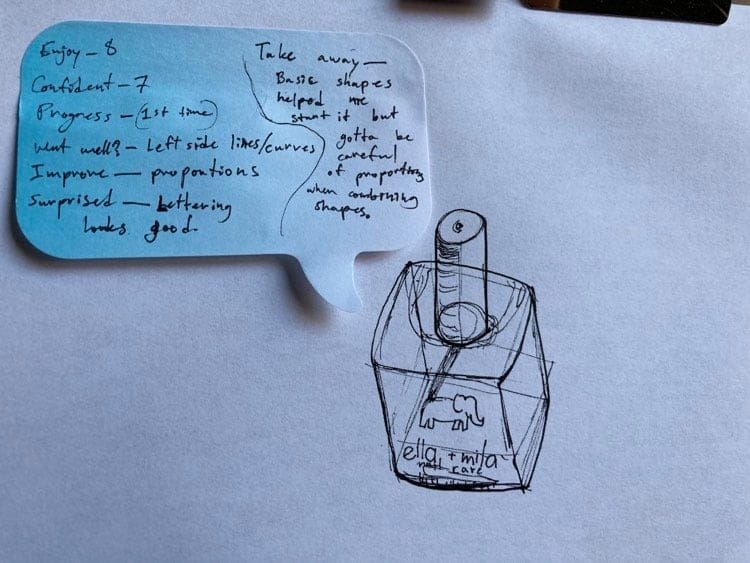 Enjoy - 8
Confident - 7
Progress - (1st time)
Went well? - Left side lines/curves
Improve - proportions
Surprised - Lettering
looks good.
Take away -
Basic shapes
helped me
start it but
gotta be
careful
of proportions
when combining
shapes.
ella + mila
nail care